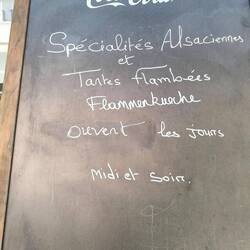 Coca-Cola
Spécialités Alsaciennes
et
Tartes flambées
Flammenkueche
ouvert les jours
Midi et Soir.